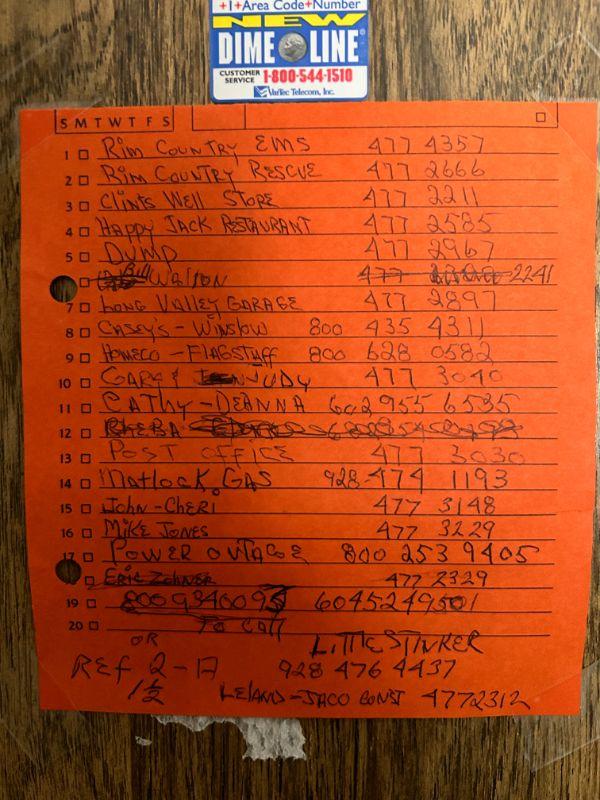 +1+Area Code+Number
NEW
DIME LINE®
CUSTOMER SERVICE 1-800-544-1510
VarTec Telecom, Inc.
S M T W T F S
1 Rim Country EMS 477 4357
2 Rim Country Rescue 477 2666
3 Clints Well Store 477 2211
4 Happy Jack Restaurant 477 2585
5 Dump 477 2967
Bill Walton 477 2241
7 Long Valley Garage 477 2897
8 Casey's - Winslow 800 435 4311
9 Homeco - Flagstaff 800 628 0582
10 Gary & Judy 477 3040
11 Cathy - DeAnna 602 955 6535
12 Rheba
13 Post Office 477 3030
14 Matlock Gas 928-474 1193
15 John - Cheri 477 3148
16 Mike Jones 477 3229
17 Power outage 800 253 9405
Eric Zohner 477 2329
19 8009340095 6045249501
20 To call
OR LittleStinker
Ref 2-17 928 476 4437
1½ Leland - Jaco Const 4772312